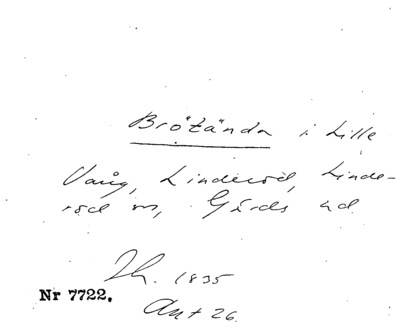 Brötända i Lille
Vång, Linderöd, Linde-
röd sn, Gärds hd
Th. 1835
Nr 7722.
Ant 26.